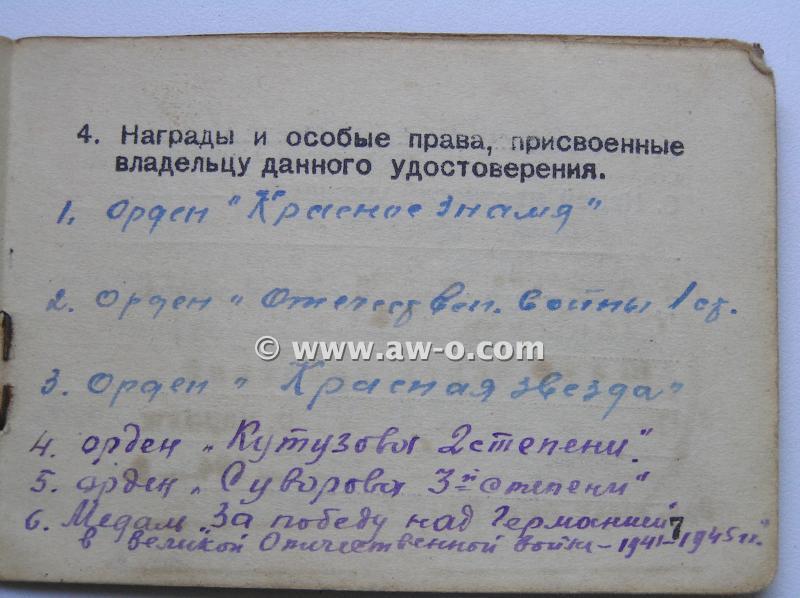 4. Награды и особые права, присвоенные
владельцу данного удостоверения.
1. Орден "Красное Знамя"
2. Орден „ Отечествен. Войны 1 ст.
© www.aw-o.com
3. Орден „ Красная звезда"
4. орден „Кутузова 2 степени".
5. орден „Суворова 3й степени"
6. Медаль „За победу над Германией
в великой Отичественной войне – 1941–1945 гг."
7